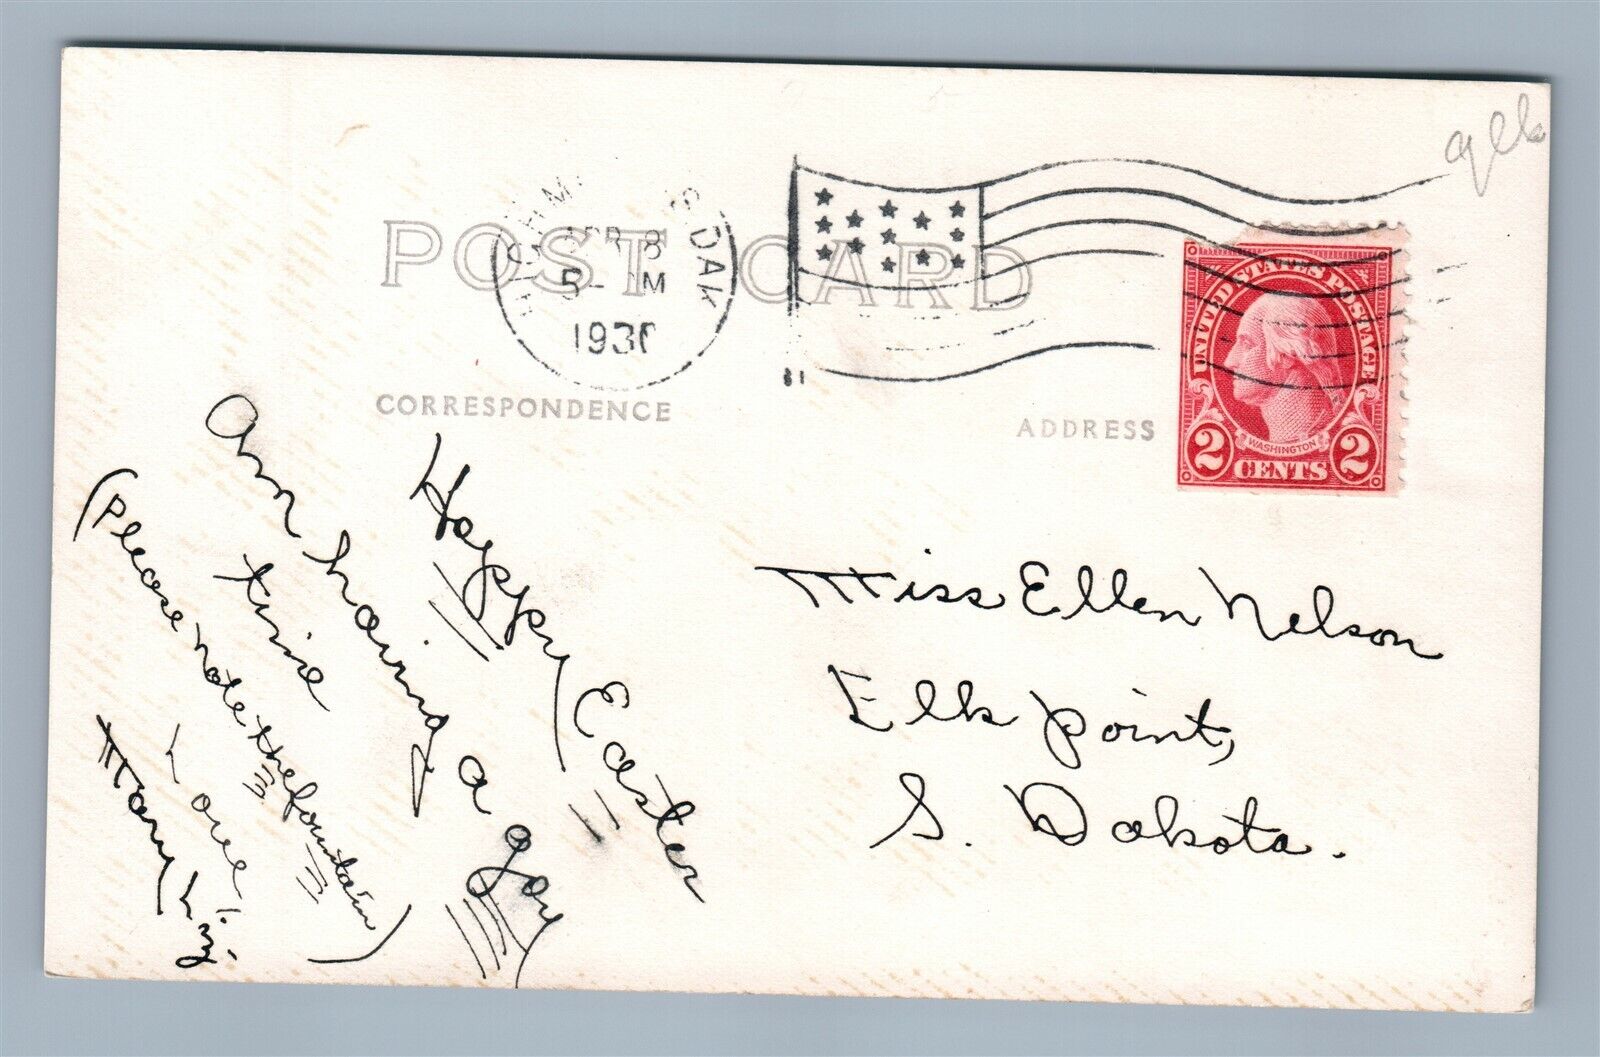 POST CARD
S. DAK
APR 8
5 - M
193
CORRESPONDENCE
ADDRESS
UNITED STATES POSTAGE
WASHINGTON
2 CENTS 2
Happy Easter
Am having a gay
time
(Please note the fountain)
Love,
Mary Liz.
Miss Ellen Nelson
Elk Point,
S. Dakota.